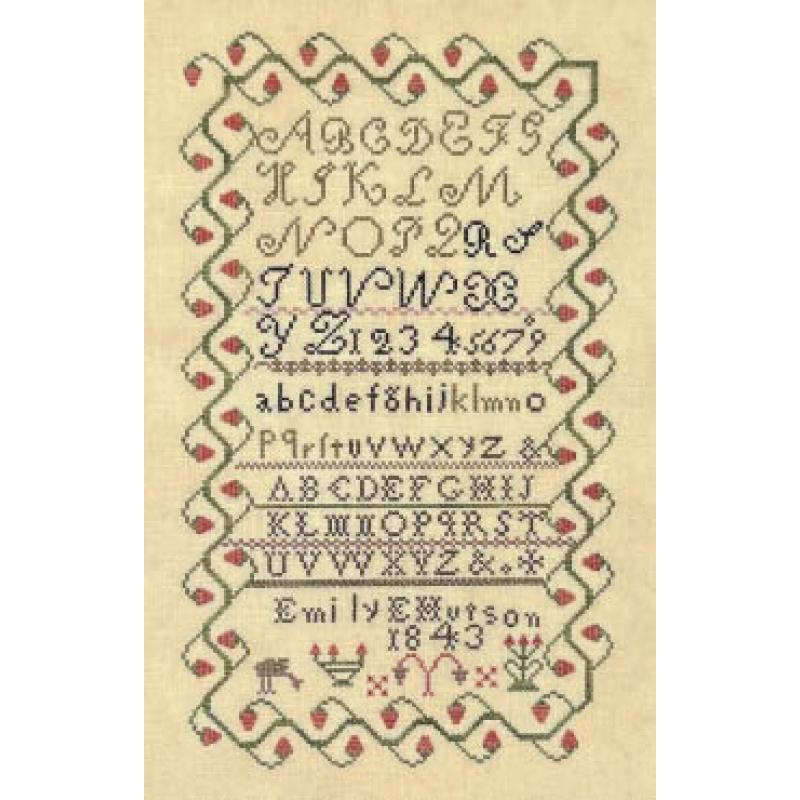 A B C D E F G
H I K L M
N O P Q R S
T U V W X
Y Z 1 2 3 4 5 6 7 8 9
a b c d e f g h i j k l m n o
p q r ſ t u v w x y z &
A B C D E F G H I J
K L M N O P Q R S T
U V W X Y Z & . *
Emily E Hutson
1843